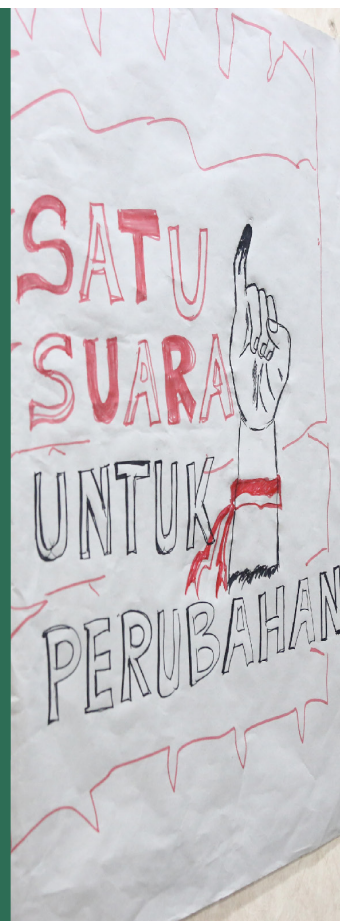 SATU
SUARA
UNTUK
PERUBAHAN